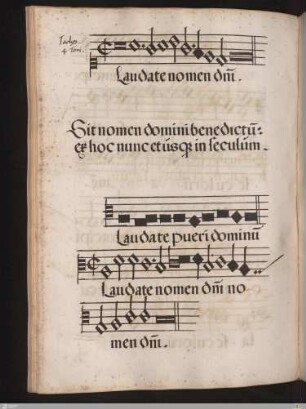 Laudate nomen dm̄.
Sit nomen domini benedictū:
ex hoc nunc et usq; in seculum.
Laudate pueri dominū
Laudate nomen dm̄ no-
men dm̄.